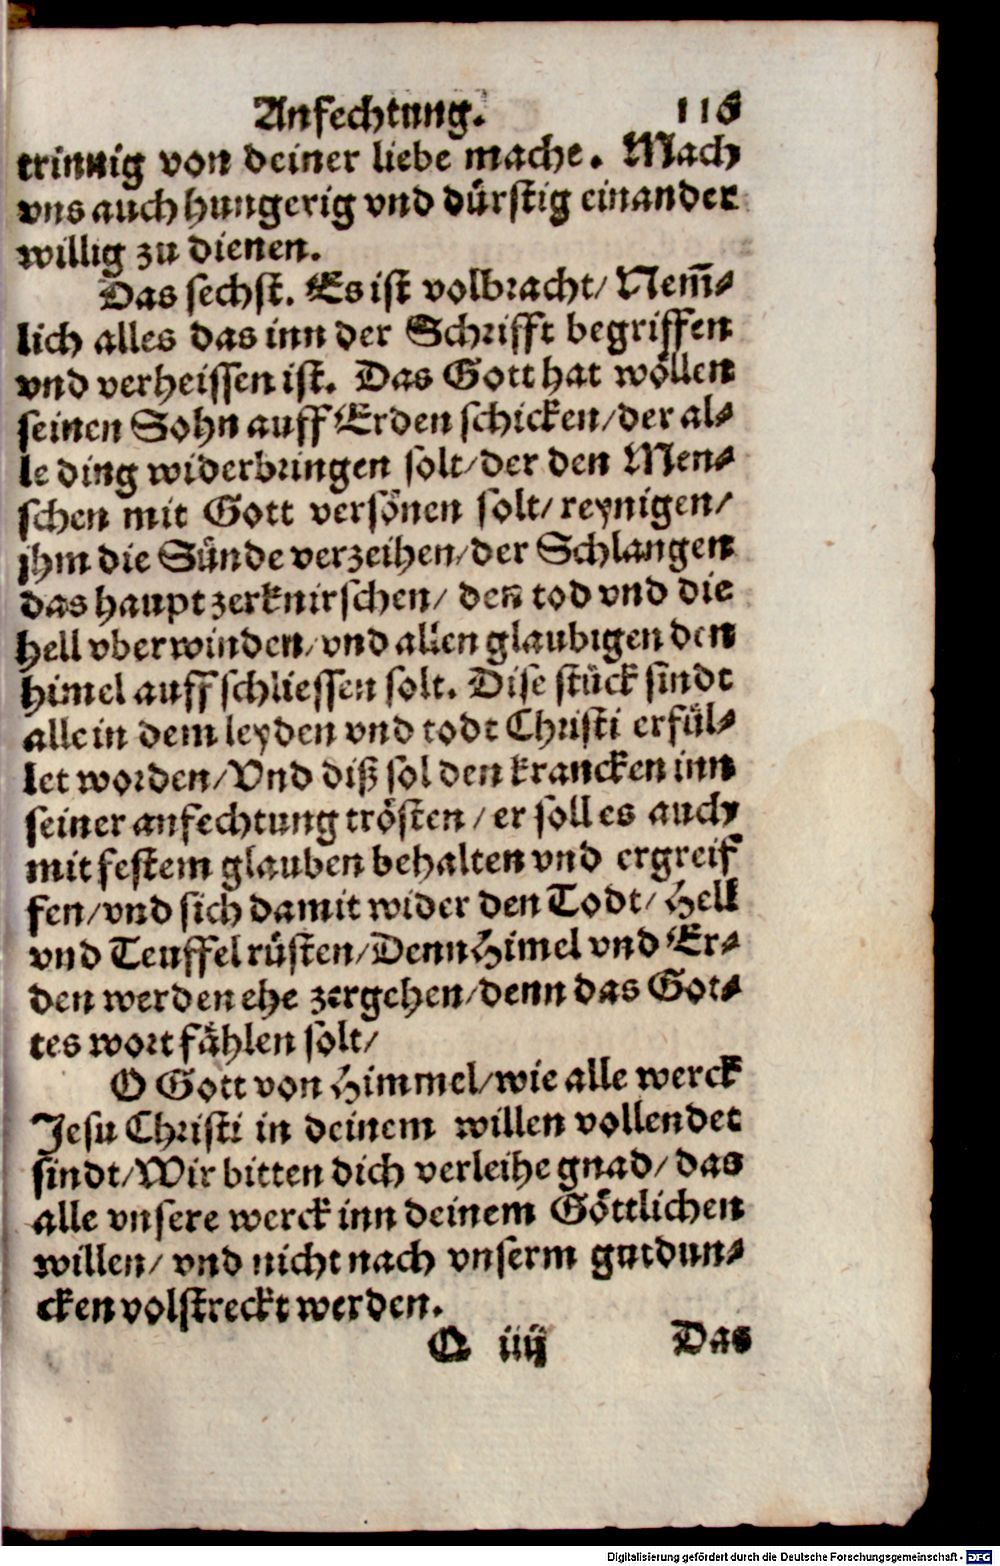 Anfechtung. 116
trinnig von deiner liebe mache. Mach
vns auch hungerig vnd dürstig einander
willig zu dienen.
Das sechst. Es ist volbracht/ Nem̃-
lich alles das inn der Schrifft begriffen
vnd verheissen ist. Das Gott hat wöllen
seinen Sohn auff Erden schicken/ der al-
le ding widerbringen solt/ der den Men-
schen mit Gott versönen solt/ reynigen/
jhm die Sünde verzeihen/ der Schlangen
das haupt zerknirschen/ den tod vnd die
hell vberwinden/ vnd allen glaubigen den
himel auff schliessen solt. Dise stück sindt
alle in dem leyden vnd todt Christi erfül-
let worden/ Vnd diß sol den krancken inn
seiner anfechtung trösten/ er soll es auch
mit festem glauben behalten vnd ergreif
fen/ vnd sich damit wider den Todt/ Hell
vnd Teuffel rüsten/ Denn Himel vnd Er-
den werden ehe zergehen/ denn das Got-
tes wort fählen solt/
O Gott von Himmel/ wie alle werck
Jesu Christi in deinem willen vollendet
sindt/ Wir bitten dich verleihe gnad/ das
alle vnsere werck inn deinem Göttlichen
willen/ vnd nicht nach vnserm gutdun-
cken volstreckt werden.
Q iiij Das
Digitalisierung gefördert durch die Deutsche Forschungsgemeinschaft - DFG